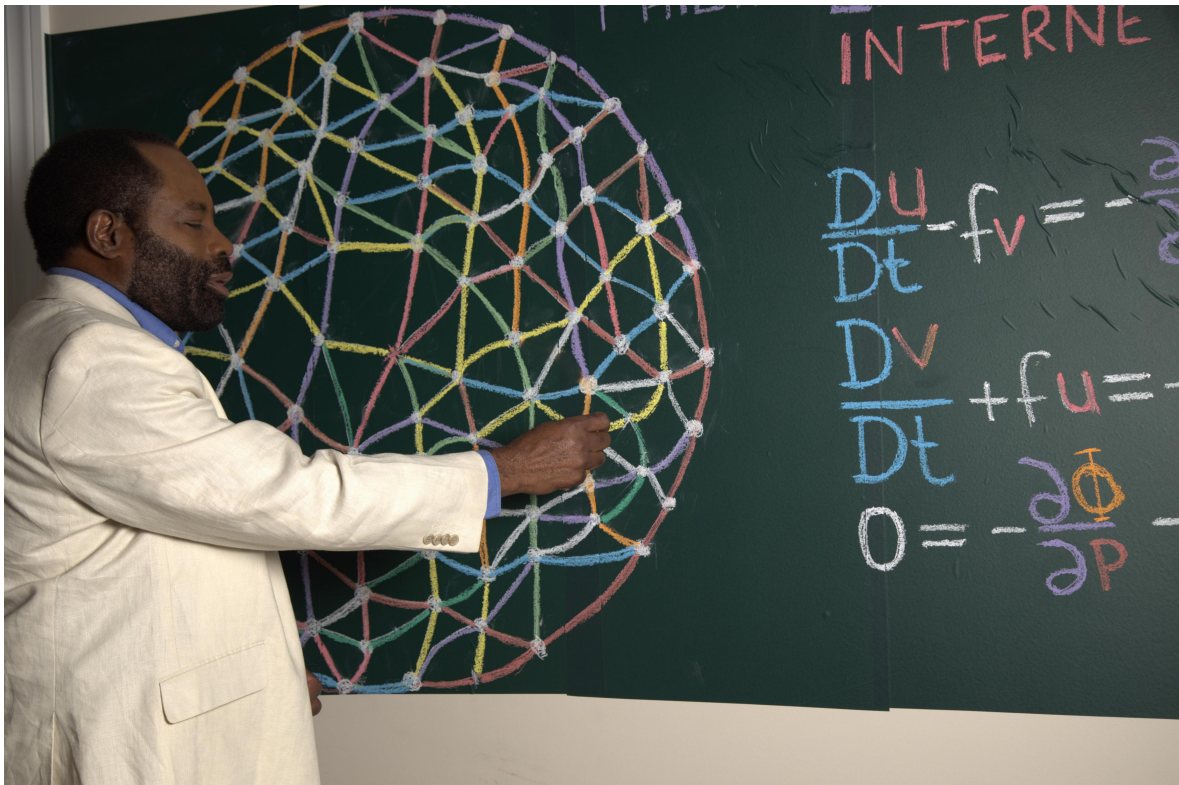 INTERNE
Du/Dt - fv = - ∂
Dv/Dt + fu = -
0 = - ∂Φ/∂p -